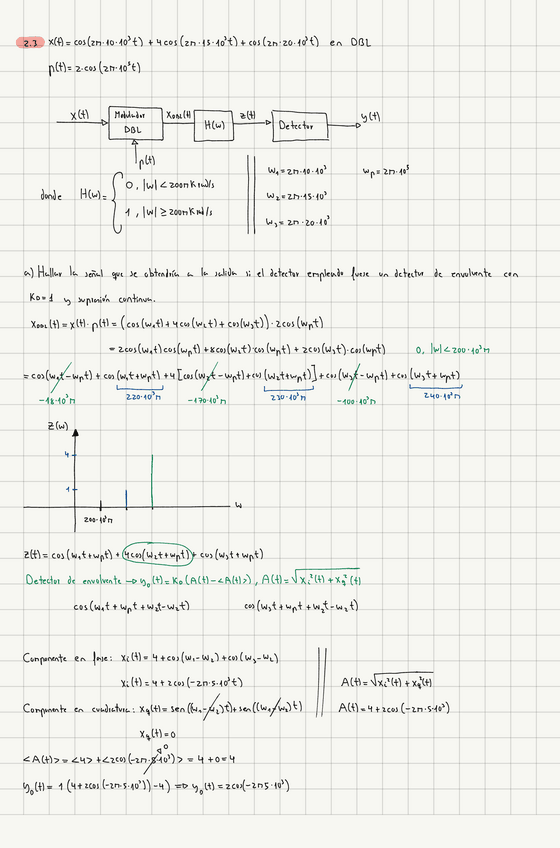 2.3 x(t) = cos(2π·10·10³t) + 4cos(2π·15·10³t) + cos(2π·20·10³t) en DBL
p(t) = 2·cos(2π·10⁵t)
x(t) Modulador DBL x_DBL(t) H(w) z(t) Detector y(t)
p(t)
donde H(w) = { 0, |w| < 200πK rad/s
1, |w| ≥ 200πK rad/s
w₁ = 2π·10·10³ w_p = 2π·10⁵
w₂ = 2π·15·10³
w₃ = 2π·20·10³
a) Hallar la señal que se obtendría a la salida si el detector empleado fuese un detector de envolvente con
K_D = 1 y supresión continua.
x_DBL(t) = x(t)·p(t) = (cos(w₁t) + 4cos(w₂t) + cos(w₃t))·2cos(w_pt)
= 2cos(w₁t)cos(w_pt) + 8cos(w₂t)·cos(w_pt) + 2cos(w₃t)·cos(w_pt) 0, |w| < 200·10³π
= cos(w₁t - w_pt) + cos(w₁t + w_pt) + 4[cos(w₂t - w_pt) + cos(w₂t + w_pt)] + cos(w₃t - w_pt) + cos(w₃t + w_pt)
-18·10³π 220·10³π -170·10³π 230·10³π -100·10³π 240·10³π
Z(w)
4
1
w
200·10³π
z(t) = cos(w₁t + w_pt) + 4cos(w₂t + w_pt) + cos(w₃t + w_pt)
Detector de envolvente → y₀(t) = K_D(A(t) - <A(t)>), A(t) = √(x_i²(t) + x_q²(t))
cos(w₁t + w_pt + w₂t - w₂t) cos(w₃t + w_pt + w₂t - w₂t)
Componente en fase: x_i(t) = 4 + cos(w₁-w₂) + cos(w₃-w₂)
x_i(t) = 4 + 2cos(-2π·5·10³t)
A(t) = √(x_i²(t) + x_q²(t))
Componente en cuadratura: x_q(t) = sen((w₁-w₂)t) + sen((w₁-w₂)t)
A(t) = 4 + 2cos(-2π·5·10³)
x_q(t) = 0
0
<A(t)> = <4> + <2cos(-2π·5·10³)> = 4 + 0 = 4
y₀(t) = 1(4 + 2cos(-2π·5·10³)) - 4) ⇒ y₀(t) = 2cos(-2π5·10³)